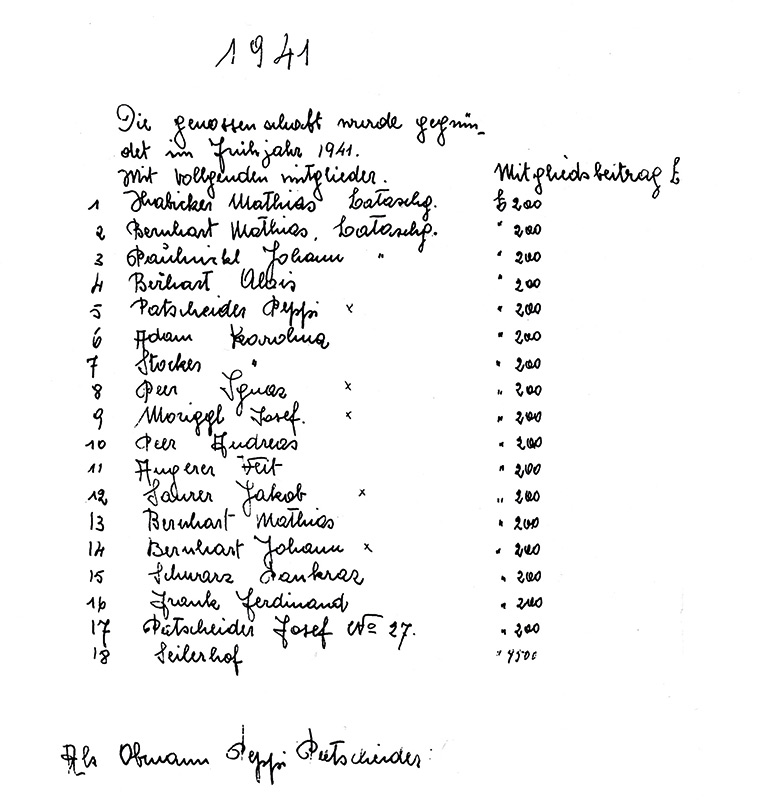 1941
Die genossenschaft wurde gegrün_
det im Frühjahr 1941.
Mit vollgenden mitglieder. Mitgliedsbeitrag £
1 Habicher Mathias Lataschg. £ 200
2 Bernhart Mathias, Lataschg. " 200
3 Johann " " 200
4 Alois " 200
5 Patscheider Peppi x " 200
6 Adam Karolina " 200
7 Stocker " " 200
8 Peer Ignaz x " 200
9 Moriggl Josef. x " 200
10 Peer Andreas " 200
11 Angerer Veit " 200
12 Saurer Jakob x " 200
13 Bernhart Mathias " 200
14 Bernhart Johann x " 200
15 Schwarz Pankraz " 200
16 Frank Ferdinand " 200
17 Patscheider Josef No 27. " 200
18 Seilerhof "
Als Obmann Peppi Patscheider